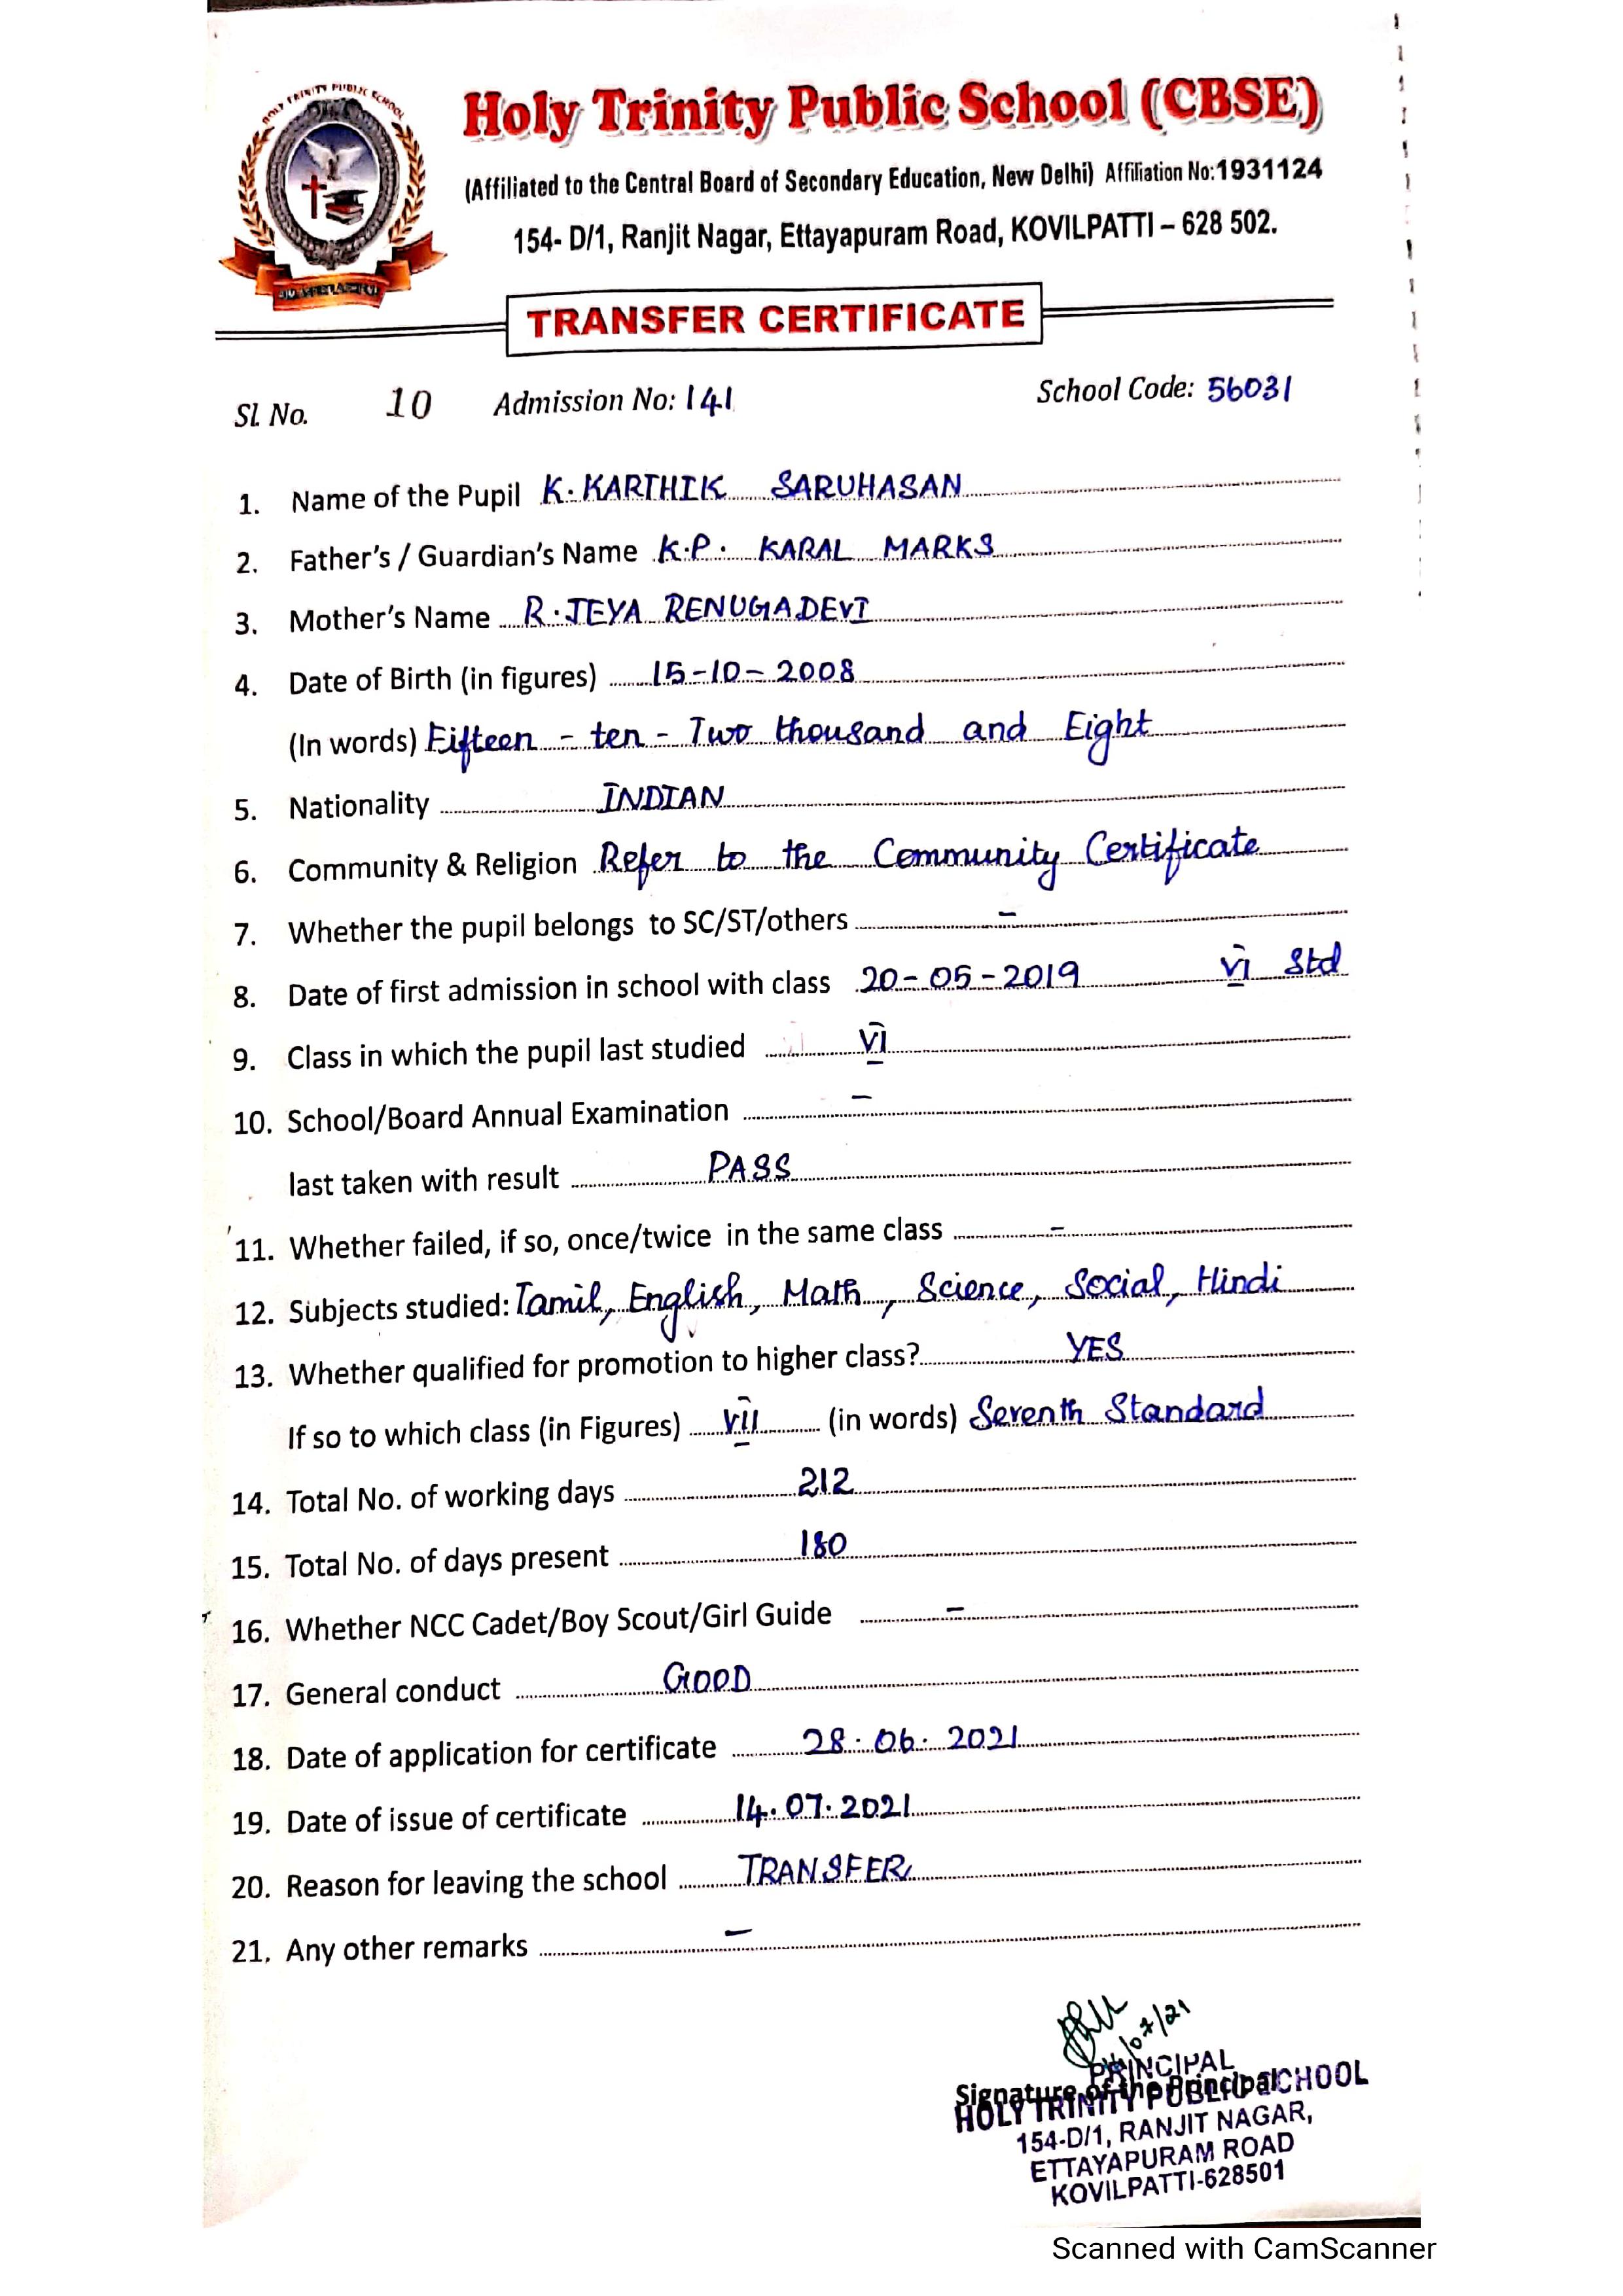 HOLY TRINITY PUBLIC SCHOOL
Holy Trinity Public School (CBSE)
(Affiliated to the Central Board of Secondary Education, New Delhi) Affiliation No:1931124
154- D/1, Ranjit Nagar, Ettayapuram Road, KOVILPATTI – 628 502.
TRANSFER CERTIFICATE
Sl. No. 10 Admission No: 141 School Code: 56031
1. Name of the Pupil K. KARTHIK SARUHASAN
2. Father's / Guardian's Name K.P. KARAL MARKS
3. Mother's Name R. JEYA RENUGADEVI
4. Date of Birth (in figures) 15-10-2008
(In words) Fifteen - ten - Two thousand and Eight
5. Nationality INDIAN
6. Community & Religion Refer to the Community Certificate
7. Whether the pupil belongs to SC/ST/others -
8. Date of first admission in school with class 20-05-2019 VI Std
9. Class in which the pupil last studied VI
10. School/Board Annual Examination -
last taken with result PASS
11. Whether failed, if so, once/twice in the same class -
12. Subjects studied: Tamil, English, Math, Science, Social, Hindi
13. Whether qualified for promotion to higher class? YES
If so to which class (in Figures) VII (in words) Seventh Standard
14. Total No. of working days 212
15. Total No. of days present 180
16. Whether NCC Cadet/Boy Scout/Girl Guide -
17. General conduct GOOD
18. Date of application for certificate 28.06.2021
19. Date of issue of certificate 14.07.2021
20. Reason for leaving the school TRANSFER
21. Any other remarks -
PRINCIPAL
Signature of the Principal
HOLY TRINITY PUBLIC SCHOOL
154-D/1, RANJIT NAGAR,
ETTAYAPURAM ROAD
KOVILPATTI-628501
Scanned with CamScanner